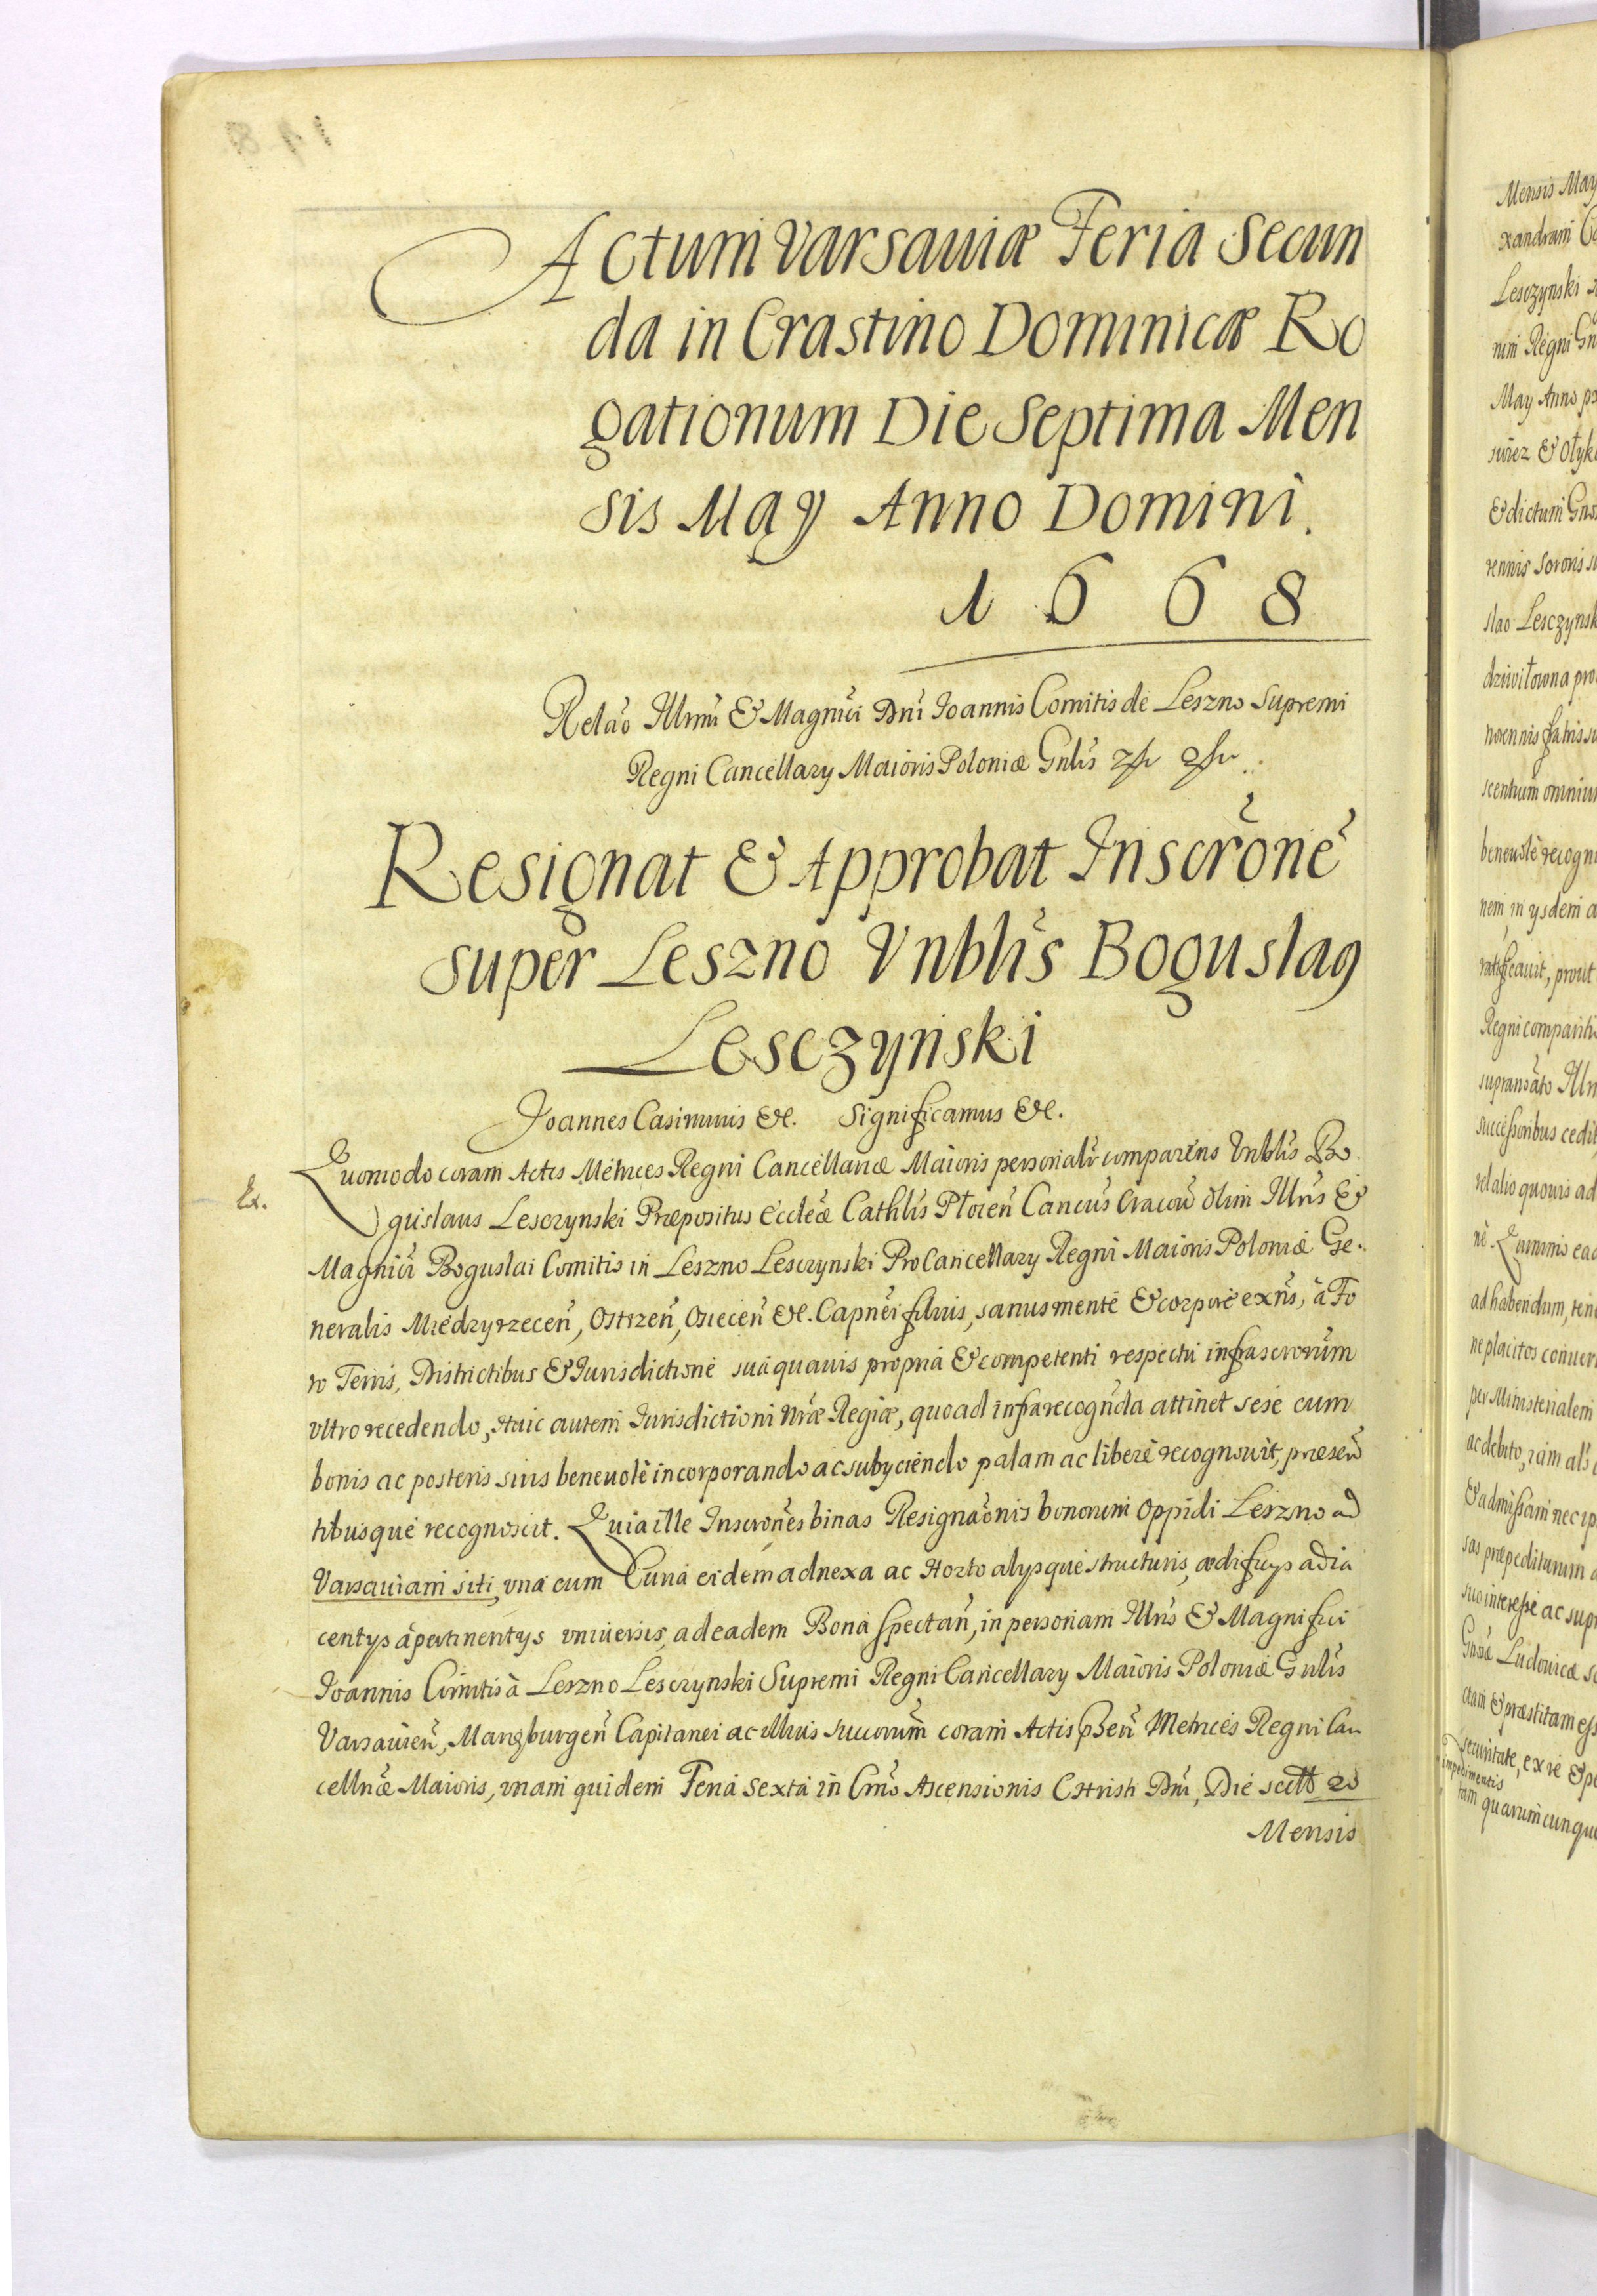 Actum Varsauiæ Feria Secun
da in Crastino Dominicæ Ro
gationum Die Septima Men
sis May Anno Domini.
1668
Relaõ Illrmi & Magnici Dni Joannis Comitis de Leszno Supremi
Regni Cancellary Maioris Poloniæ Gnlis
Resignat & Approbat Inscrõne
super Leszno Vnblis Boguslag
Lesczynski
Joannes Casimirus &c. Significamus &c.
Ex.
Quomodo coram Actis Metrices Regni Cancellariæ Maioris personalr comparens Vnblis Bo
guslaus Lesczynski Præpositus Eccleæ Cathlis Płocen Cancus Cracou olim Illris &
Magnici Boguslai Comitis in Leszno Lesczynski ProCancellary Regni Maioris Poloniæ Ge.
neralis Miedzyrzecen, Ostrzen, Osiecen &c. Capnei filius, sanus mente & corpore exns, à Fo
ro Terris, Districtibus & Jurisdictione sua quauis propria & competenti respectu infrascrorum
vltro recedendo, Huic autem Jurisdictioni nræ Regiæ, quoad infrarecognda attinet sese cum
bonis ac posteris suis beneuolè incorporando ac subyciendo palam ac liberè recognouit, præsen
tibusque recognoscit. Quia ille Inscrones binas Resignaõnis bonorum Oppidi Leszno ad
Varsauiam siti, vna cum Curia eidem adnexa ac Horto alysque structuris, ædificys adia
centys apertinentys vniuersis, ad eadem Bona spectan, in personam Illris & Magnifici
Joannis Comitis à Leszno Lesczynski Supremi Regni Cancellary Maioris Poloniæ Gnlis
Varsauien, Margburgen Capitanei ac illius succorum coram Actis psen Metrices Regni Can
cellriæ Maioris, vnam quidem Feria Sexta in Crno Ascensionis Christi Dni, Die sctt 20
Mensis
Mensis May
xandram
Lesczynski
rum Regni
May Anno
& dictum
rennis Sororis
slao Lesczynsk
dziwiłowna
scentium omnium
beneuolè recogn
nem in ysdem
ratificauit, prout
Regni comparith
supranato
successoribus cedit
vel alio quouis ad
ad habendum,
ne placitos
per Ministerialem
ac debito, iam
& admissam nec
sas præpeditorum
suo interesse ac
Ludouicæ
ctam & præstitam
securitate, ex re
impedimentis
tam quarumcunque